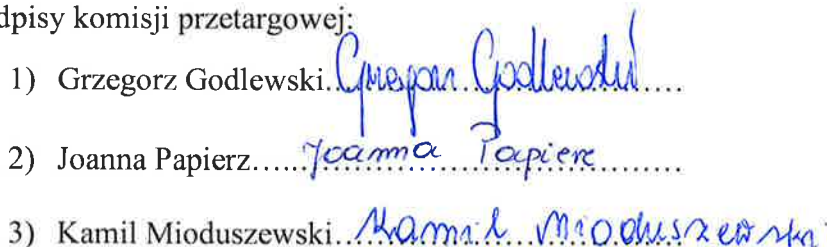 dpisy komisji przetargowej:
1) Grzegorz Godlewski. Grzegorz Godlewski .....
2) Joanna Papierz...... Joanna Papierz ........
3) Kamil Mioduszewski... Kamil Mioduszewski